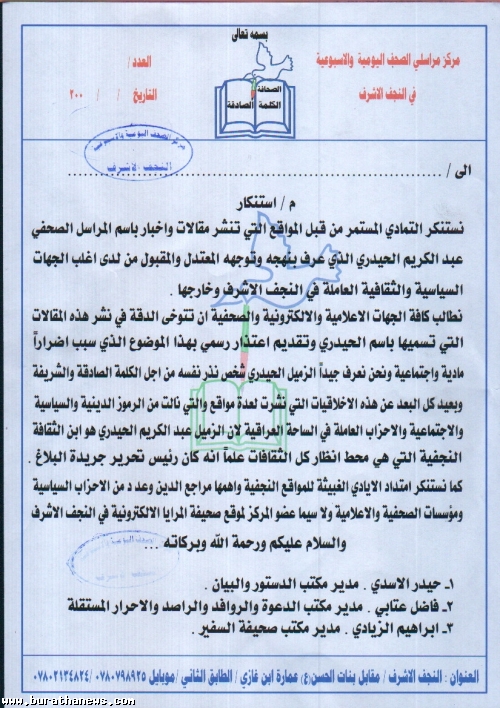 بسمه تعالى
مركز مراسلي الصحف اليومية والاسبوعية
في النجف الاشرف
الصحافة
الكلمة الصادقة
العدد /
التاريخ / / ٢٠٠
مركز الصحف اليومية والاسبوعية
النجف الاشرف
الى / ................................................................
م / استنكار
نستنكر التمادي المستمر من قبل المواقع التي تنشر مقالات واخبار باسم المراسل الصحفي
عبد الكريم الحيدري الذي عرف بنهجه وتوجهه المعتدل والمقبول من لدى اغلب الجهات
السياسية والثقافية العاملة في النجف الاشرف وخارجها .
نطالب كافة الجهات الاعلامية والالكترونية والصحفية ان تتوخى الدقة في نشر هذه المقالات
التي تسميها باسم الحيدري وتقديم اعتذار رسمي بهذا الموضوع الذي سبب اضراراً
مادية واجتماعية ونحن نعرف جيداً الزميل الحيدري شخص نذر نفسه من اجل الكلمة الصادقة والشريفة
وبعيد كل البعد عن هذه الاخلاقيات التي نشرت لعدة مواقع والتي نالت من الرموز الدينية والسياسية
والاجتماعية والاحزاب العاملة في الساحة العراقية لان الزميل عبد الكريم الحيدري هو ابن الثقافة
النجفية التي هي محط انظار كل الثقافات علماً انه كان رئيس تحرير جريدة البلاغ .
كما نستنكر امتداد الايادي الخبيثة للمواقع النجفية واهمها مراجع الدين وعدد من الاحزاب السياسية
ومؤسسات الصحفية والاعلامية ولا سيما عضو المركز لموقع صحيفة المرايا الالكترونية في النجف الاشرف
والسلام عليكم ورحمة الله وبركاته ...
١ـ حيدر الاسدي . مدير مكتب الدستور والبيان .
٢ـ فاضل عتابي . مدير مكتب الدعوة والروافد والراصد والاحرار المستقلة
٣ـ ابراهيم الزيادي . مدير مكتب صحيفة السفير .
العنوان : النجف الاشرف / مقابل بنات الحسن(ع) عمارة ابن غازي / الطابق الثاني / موبايل ٠٧٨٠٧٩٨٩٢٥ / ٠٧٨٠٢١٣٤٨٢٤
www.burathanews.com